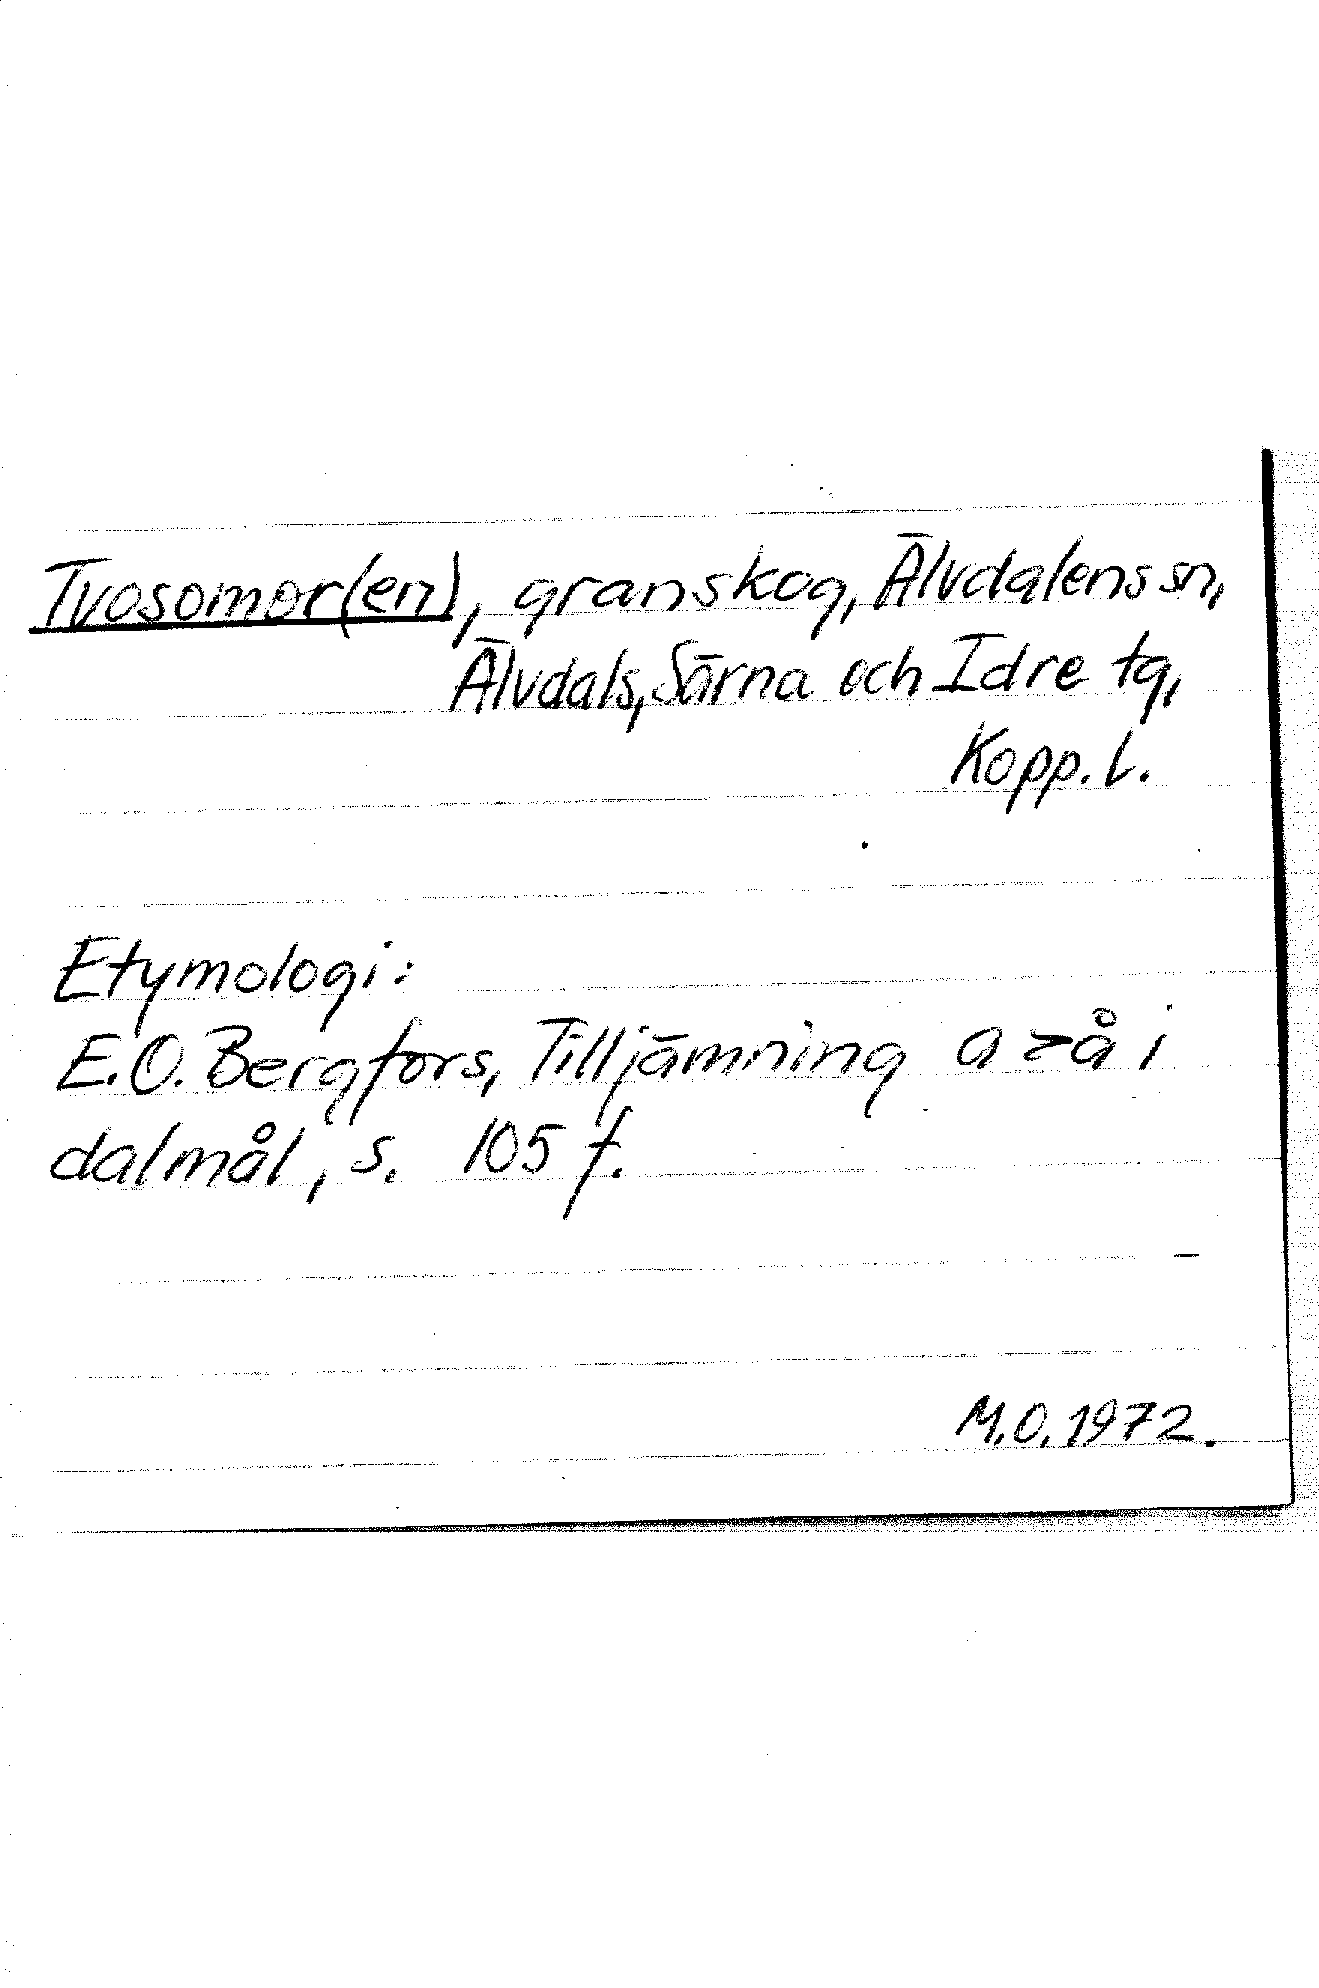 Tvosomor(en), granskog, Älvdalens sn,
Älvdals, Särna och Idre tg,
Kopp. l.
Etymologi:
E.O. Bergfors, Tilljämning a > å i
dalmål, s. 105 f.
M.O. 1972.